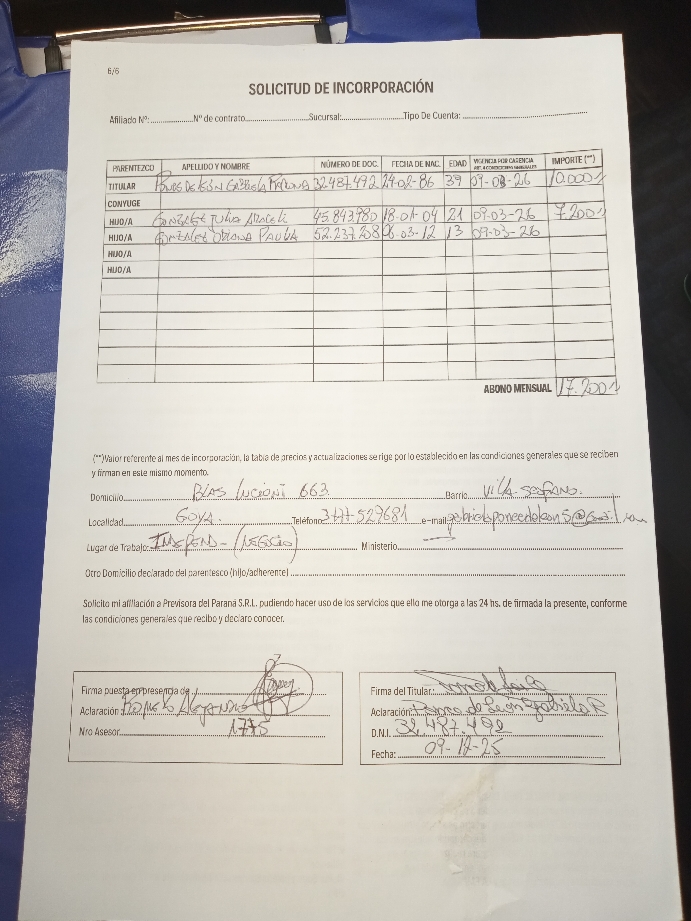 6/6
SOLICITUD DE INCORPORACIÓN
Afiliado Nº: Nº de contrato Sucursal: Tipo De Cuenta:
PARENTEZCO APELLIDO Y NOMBRE NÚMERO DE DOC. FECHA DE NAC. EDAD VIGENCIA POR CARENCIA IMPORTE (**)
TITULAR Ponce de León Gabriela 32.487.492 24-02-86 39 09-03-26 10.000
CONYUGE
HIJO/A Gonzalez Julia Araceli 45.843.980 18-01-04 21 09-03-26 7.200
HIJO/A Gonzalez Oriana Paula 52.237.208 26-03-12 13 09-03-26
HIJO/A
HIJO/A
ABONO MENSUAL 17.200
(**)Valor referente al mes de incorporación, la tabla de precios y actualizaciones se rige por lo establecido en las condiciones generales que se reciben
y firman en este mismo momento.
Domicilio Blas Lucioni 663 Barrio Villa
Localidad GOYA. Teléfono 3777-529681 e-mail gabrielaponcedeleon5@
Lugar de Trabajo: Indepen - (Negocio) Ministerio
Otro Domicilio declarado del parentesco (hijo/adherente)
Solicito mi afiliación a Previsora del Paraná S.R.L. pudiendo hacer uso de los servicios que ello me otorga a las 24 hs. de firmada la presente, conforme
las condiciones generales que recibo y declaro conocer.
Firma puesta en presencia de
Aclaración Alejandro
Nro Asesor 1775
Firma del Titular:
Aclaración: Ponce de Leon Gabriela R
D.N.I. 32.487.492
Fecha: 09-12-25